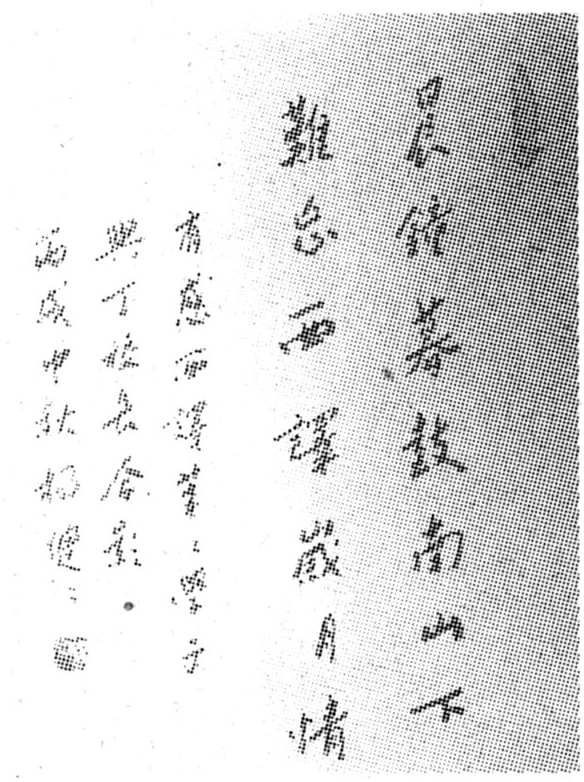 晨鐘暮鼓南山下
難忘西譯歲月情
有感西譯莘〻學子
與丁校長合影
丙戌中秋楊健〻